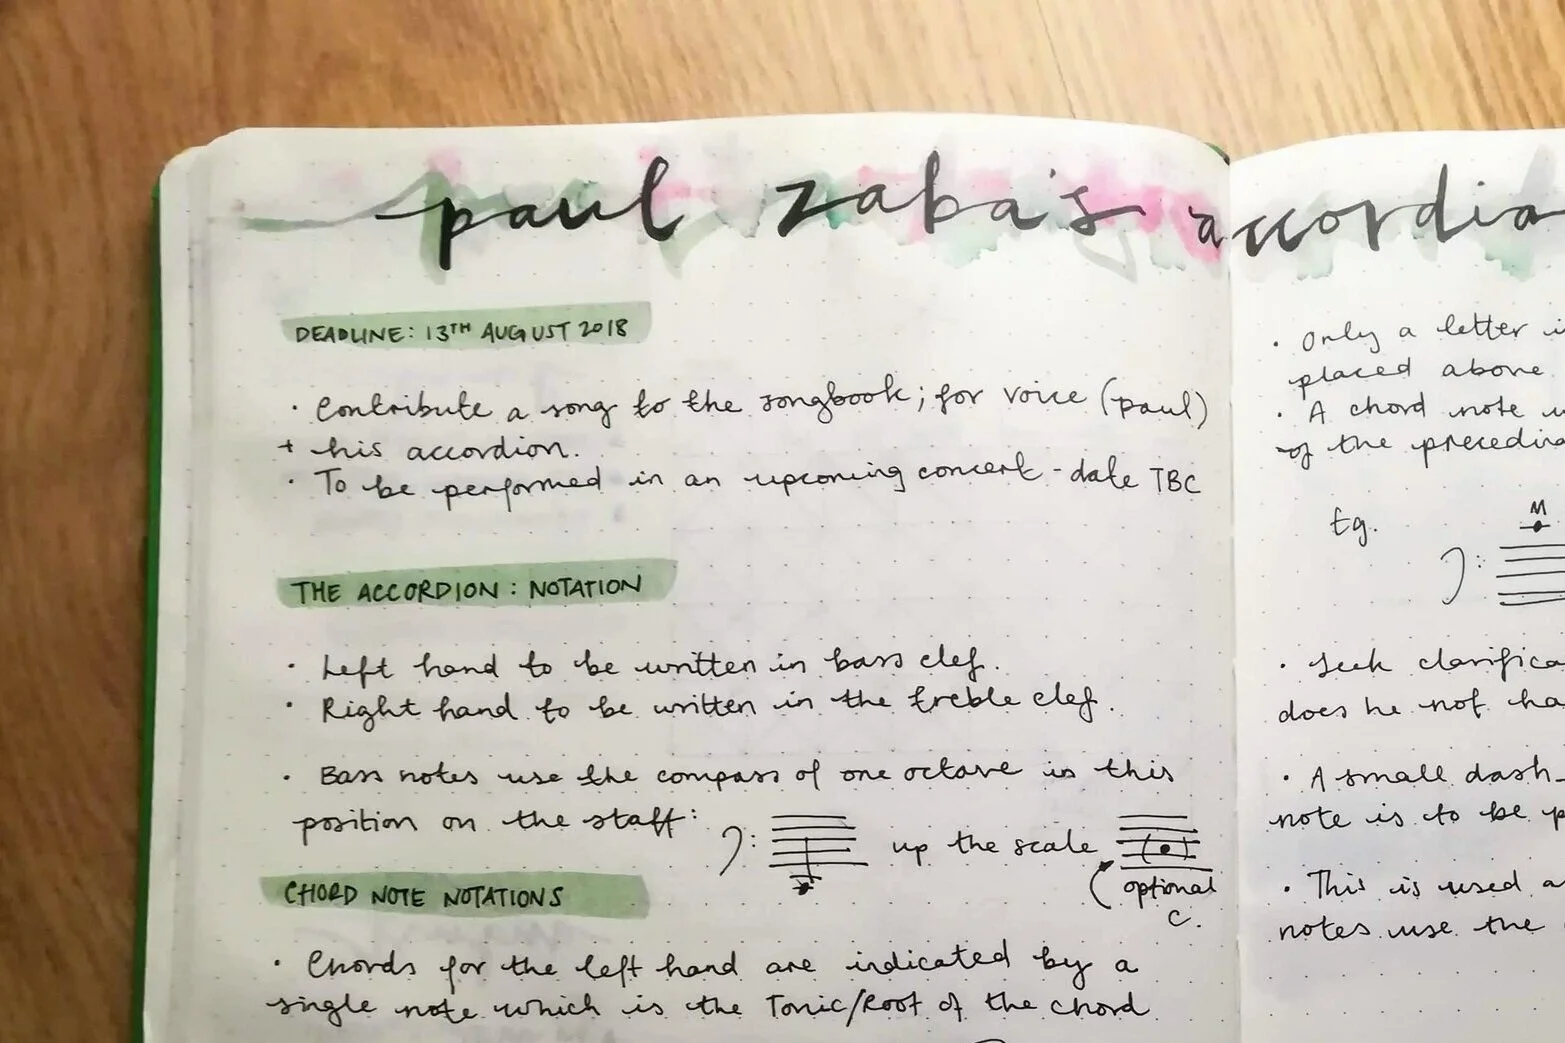 paul zaba's accordia
DEADLINE: 13TH AUGUST 2018
· Contribute a song to the songbook; for voice (paul)
+ his accordion.
· To be performed in an upcoming concert - date TBC
THE ACCORDION: NOTATION
· Left hand to be written in bass clef.
· Right hand to be written in the treble clef.
· Bass notes use the compass of one octave in this
position on the staff: up the scale
optional
C.
CHORD NOTE NOTATIONS
· Chords for the left hand are indicated by a
single note which is the Tonic/Root of the chord
· Only a letter i
placed above
· A chord note
of the precedin
Eg.
M
· Seek clarifica
does he not ha
· A small dash-
note is to be p
· This is used a
notes use the